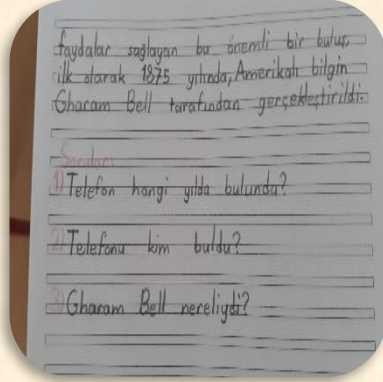 faydalar sağlayan bu önemli bir buluş,
ilk olarak 1875 yılında, Amerikalı bilgin
Gharam Bell tarafından gerçekleştirildi.
Sorular
1) Telefon hangi yılda bulundu?
2) Telefonu kim buldu?
3) Gharam Bell nereliydi?